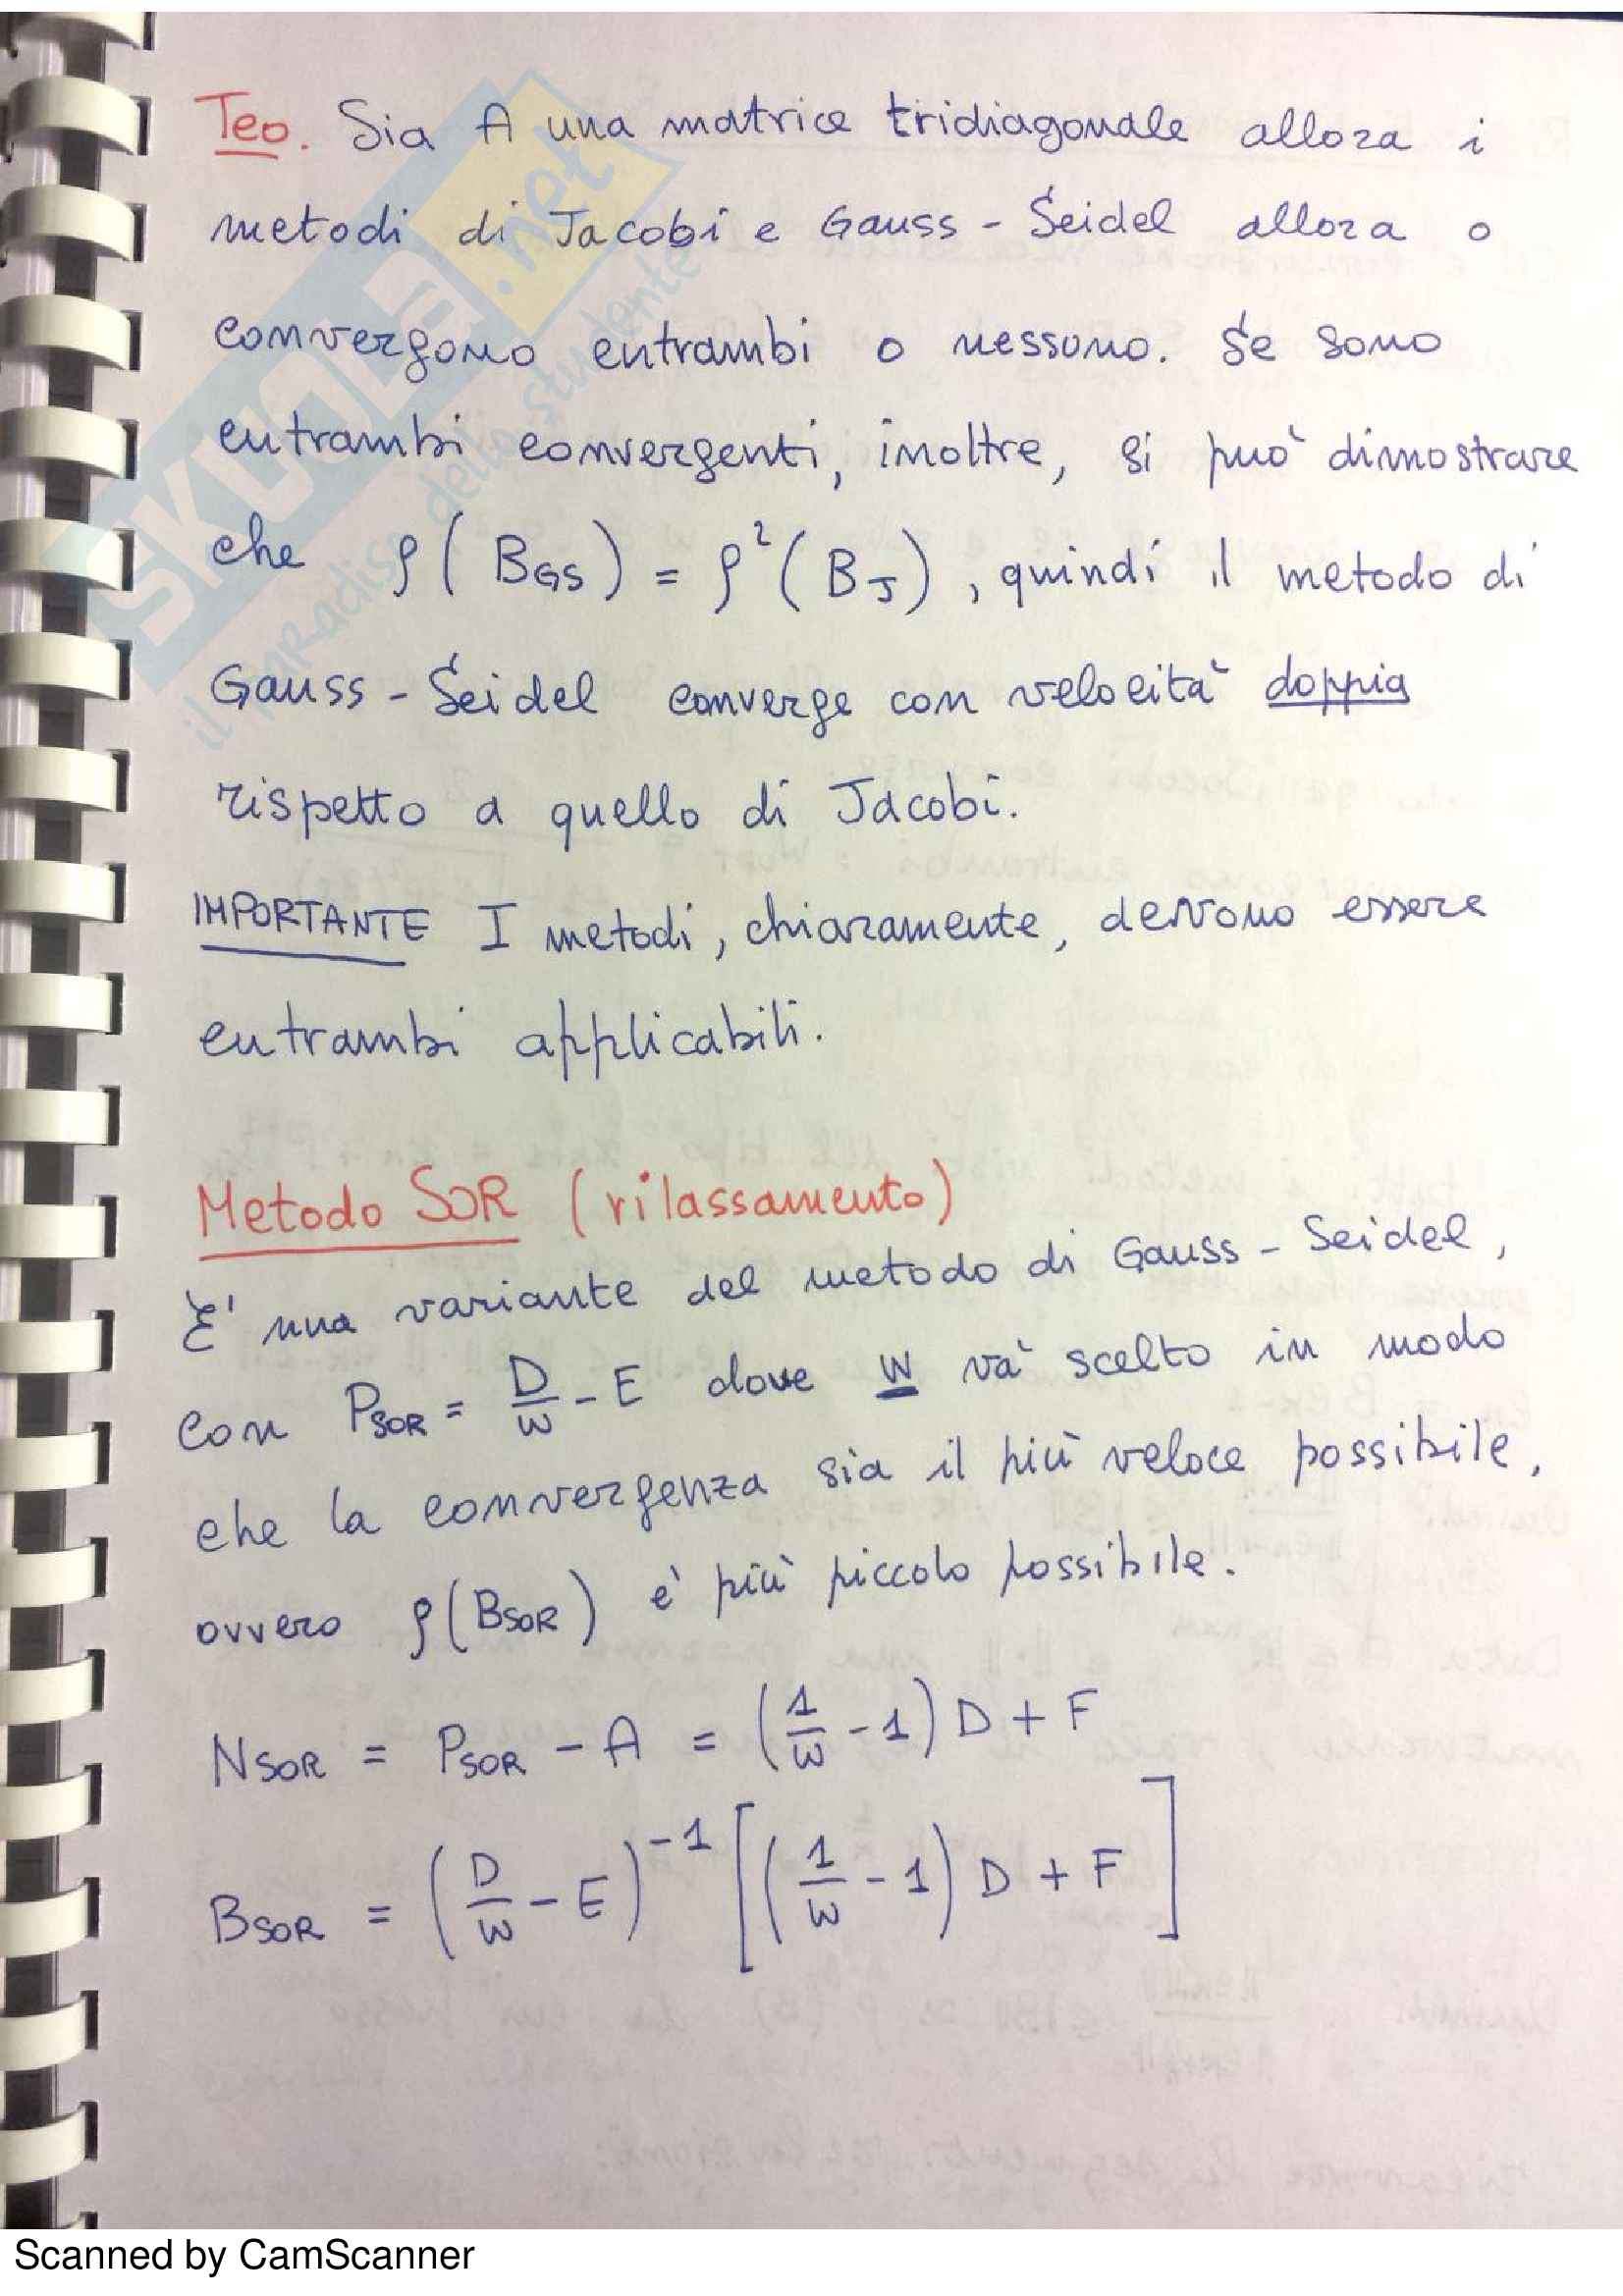 Teo. Sia A una matrice tridiagonale allora i
metodi di Jacobi e Gauss-Seidel allora o
convergono entrambi o nessuno. Se sono
entrambi convergenti, inoltre, si può dimostrare
che ρ(B_GS) = ρ²(B_J), quindi il metodo di
Gauss-Seidel converge con velocità doppia
rispetto a quello di Jacobi.
IMPORTANTE I metodi, chiaramente, devono essere
entrambi applicabili.
Metodo SOR (rilassamento)
E' una variante del metodo di Gauss-Seidel,
con P_SOR = D/w - E dove w và scelto in modo
che la convergenza sia il più veloce possibile,
ovvero ρ(B_SOR) è più piccolo possibile.
N_SOR = P_SOR - A = (1/w - 1) D + F
B_SOR = (D/w - E)^-1 [(1/w - 1) D + F]
SKUOLA.net
il paradiso dello studente
Scanned by CamScanner